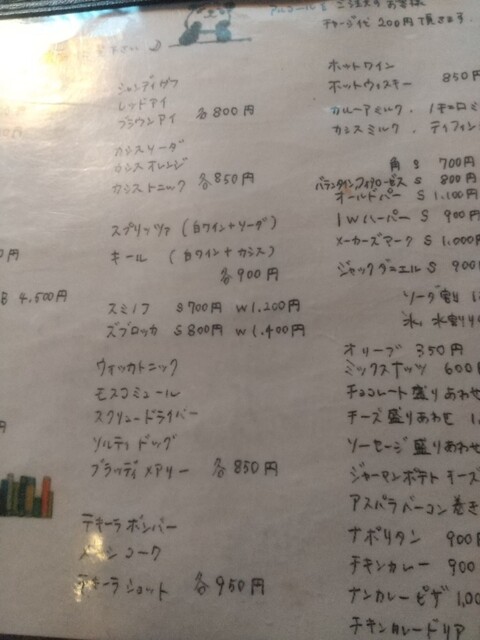 アルコールを ご注文のお客様
チャージ代 200円 頂きます.
下さい♪
シャンディガフ
レッドアイ
ブラウンアイ 各800円
カシスソーダ
カシスオレンジ
カシストニック 各850円
スプリッツァ (白ワイン+ソーダ)
キール (白ワイン+カシス)
各900円
スミノフ S700円 W1.200円
ズブロッカ S800円 W1.400円
ウォッカトニック
モスコミュール
スクリュードライバー
ソルティドッグ
ブラッディメアリー 各850円
テキーラボンバー
コーク
テキーラショット 各950円
円
B 4.500円
円
ホットワイン
ホットウィスキー 850円
カルーアミルク.
カシスミルク. ティフィン
角 S 700円
バランタイン フォアローゼス S 800円
オールドパー S 1.100円
I.Wハーパー S 900円
メーカーズマーク S 1.000円
ジャックダニエル S 900円
ソーダ割り
氷. 水割り
オリーブ 350円
ミックスナッツ 600円
チョコレート盛りあわせ
チーズ盛りあわせ
ソーセージ盛りあわせ
ジャーマンポテト チーズ
アスパラベーコン巻き
ナポリタン 900円
チキンカレー 900
ナンカレーピザ 1,00
チキンカレードリア